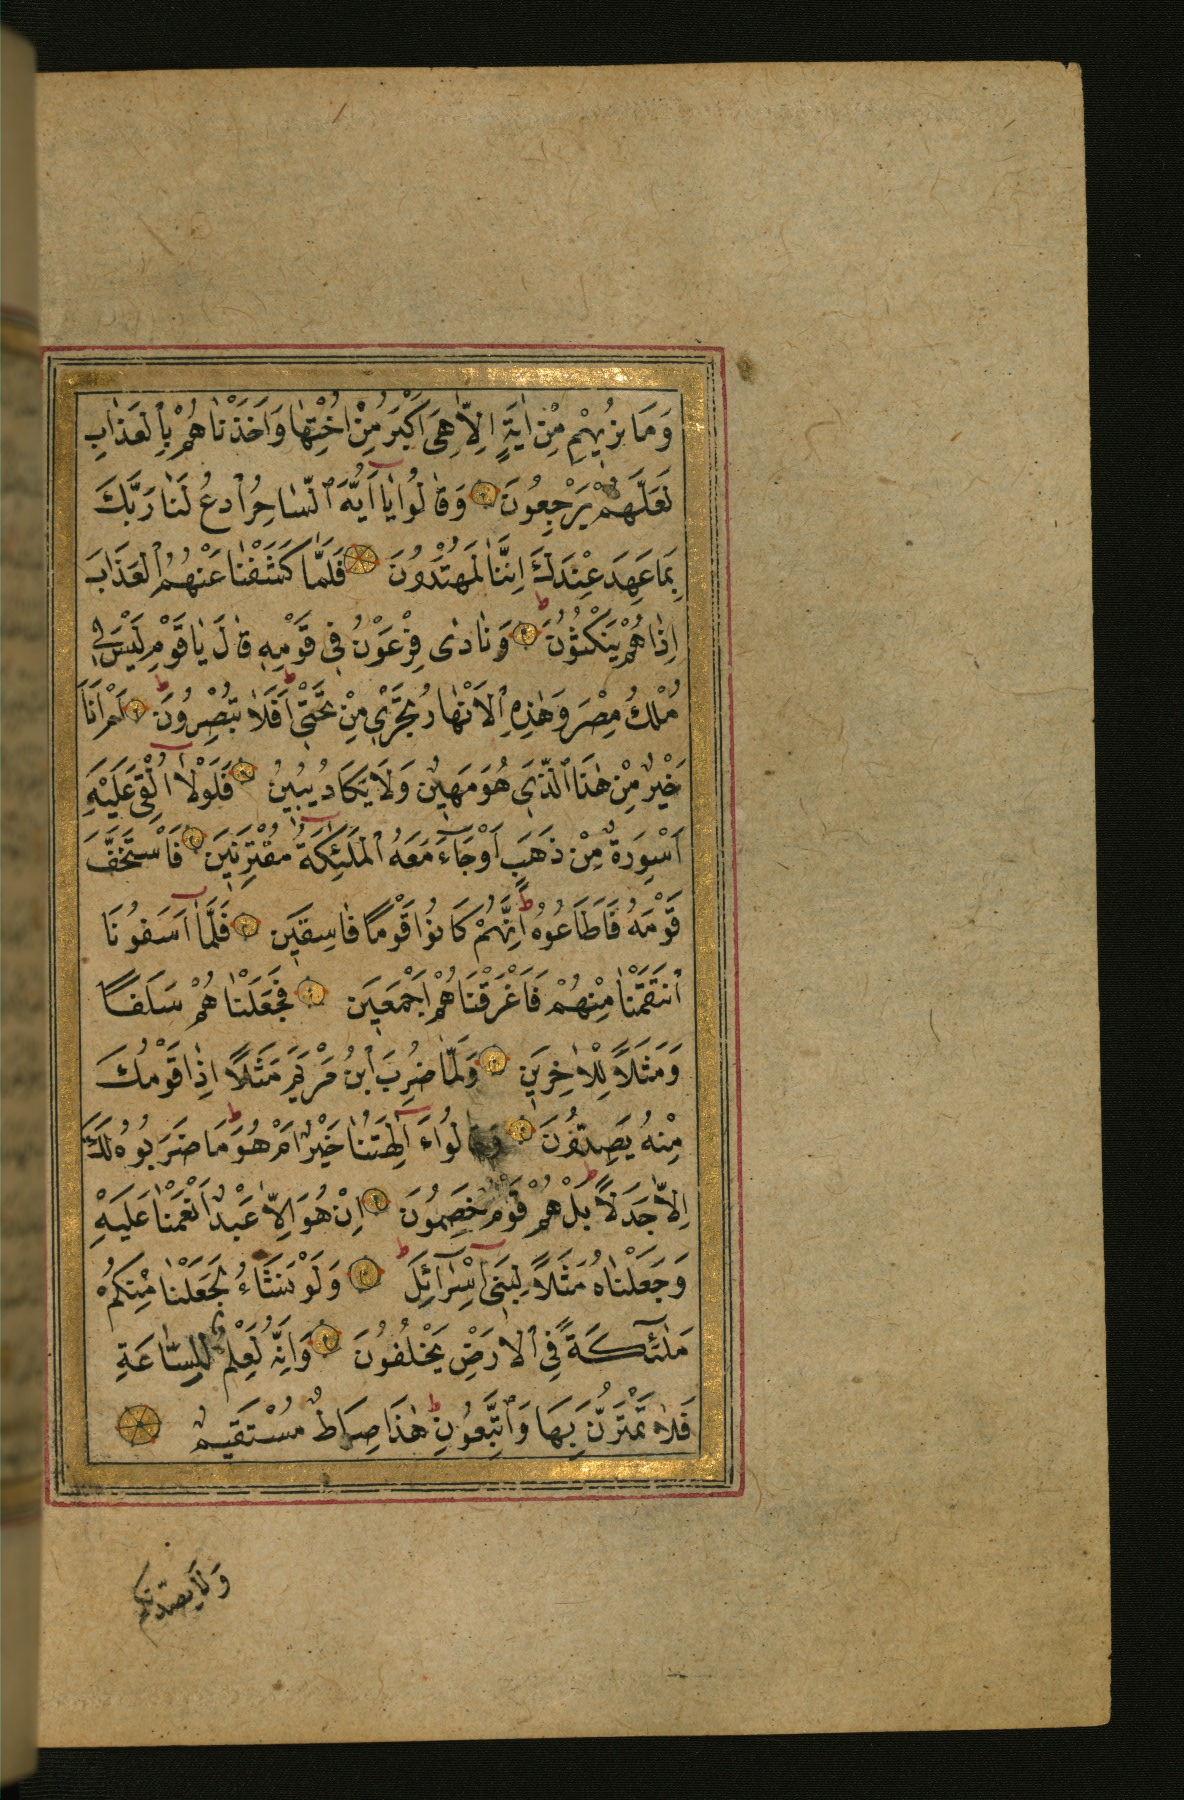 وَمَا نُرِيهِمْ مِنْ اٰيَةٍ اِلَّا هِىَ اَكْبَرُ مِنْ اُخْتِهَا وَاَخَذْنَاهُمْ بِالْعَذَابِ
لَعَلَّهُمْ يَرْجِعُونَ وَقَالُوا يَا اَيُّهَ السَّاحِرُ ادْعُ لَنَا رَبَّكَ
بِمَا عَهِدَ عِنْدَكَ اِنَّنَا لَمُهْتَدُونَ فَلَمَّا كَشَفْنَا عَنْهُمُ الْعَذَابَ
اِذَا هُمْ يَنْكُثُونَ وَنَادٰى فِرْعَوْنُ فِى قَوْمِهِ قَالَ يَا قَوْمِ لَيْسَ لِى
مُلْكُ مِصْرَ وَهٰذِهِ الْاَنْهَارُ تَجْرِى مِنْ تَحْتِى اَفَلَا تُبْصِرُونَ اَمْ اَنَا
خَيْرٌ مِنْ هٰذَا الَّذِى هُوَ مَهِينٌ وَلَا يَكَادُ يُبِينُ فَلَوْلَا اُلْقِىَ عَلَيْهِ
اَسْوِرَةٌ مِنْ ذَهَبٍ اَوْ جَاءَ مَعَهُ الْمَلٰئِكَةُ مُقْتَرِنِينَ فَاسْتَخَفَّ
قَوْمَهُ فَاَطَاعُوهُ اِنَّهُمْ كَانُوا قَوْمًا فَاسِقِينَ فَلَمَّا اٰسَفُونَا
انْتَقَمْنَا مِنْهُمْ فَاَغْرَقْنَاهُمْ اَجْمَعِينَ فَجَعَلْنَاهُمْ سَلَفًا
وَمَثَلًا لِلْاٰخِرِينَ وَلَمَّا ضُرِبَ ابْنُ مَرْيَمَ مَثَلًا اِذَا قَوْمُكَ
مِنْهُ يَصِدُّونَ وَقَالُوا ءَاٰلِهَتُنَا خَيْرٌ اَمْ هُوَ مَا ضَرَبُوهُ لَكَ
اِلَّا جَدَلًا بَلْ هُمْ قَوْمٌ خَصِمُونَ اِنْ هُوَ اِلَّا عَبْدٌ اَنْعَمْنَا عَلَيْهِ
وَجَعَلْنَاهُ مَثَلًا لِبَنِى اِسْرَائِلَ وَلَوْ نَشَاءُ لَجَعَلْنَا مِنْكُمْ
مَلٰئِكَةً فِى الْاَرْضِ يَخْلُفُونَ وَاِنَّهُ لَعِلْمٌ لِلسَّاعَةِ
فَلَا تَمْتَرُنَّ بِهَا وَاتَّبِعُونِ هٰذَا صِرَاطٌ مُسْتَقِيمٌ
وَلَا يَصُدَّنَّكُمُ